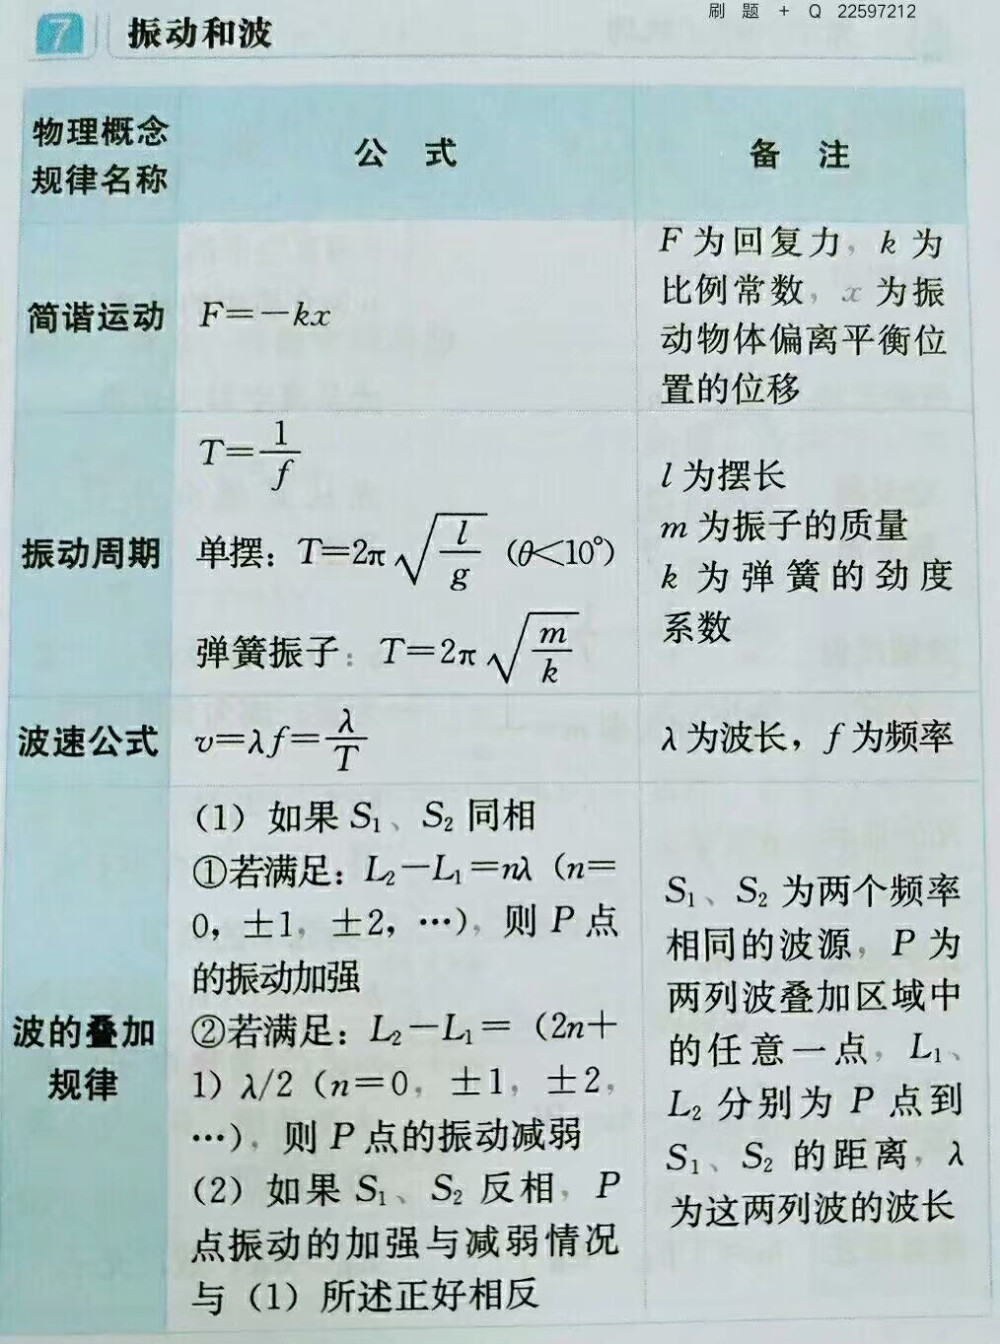 刷 题 + Q 22597212
7 振动和波
物理概念
规律名称
公 式
备 注
简谐运动
F=-kx
F 为回复力，k 为
比例常数，x 为振
动物体偏离平衡位
置的位移
振动周期
T=1/f
单摆：T=2π√(l/g) (θ<10°)
弹簧振子：T=2π√(m/k)
l 为摆长
m 为振子的质量
k 为弹簧的劲度
系数
波速公式
v=λf=λ/T
λ为波长，f 为频率
波的叠加
规律
(1) 如果 S₁、S₂ 同相
①若满足：L₂-L₁=nλ (n=
0，±1，±2，…)，则 P 点
的振动加强
②若满足：L₂-L₁= (2n+
1) λ/2 (n=0，±1，±2，
…)，则 P 点的振动减弱
(2) 如果 S₁、S₂ 反相，P
点振动的加强与减弱情况
与 (1) 所述正好相反
S₁、S₂ 为两个频率
相同的波源，P 为
两列波叠加区域中
的任意一点，L₁、
L₂ 分别为 P 点到
S₁、S₂ 的距离，λ
为这两列波的波长